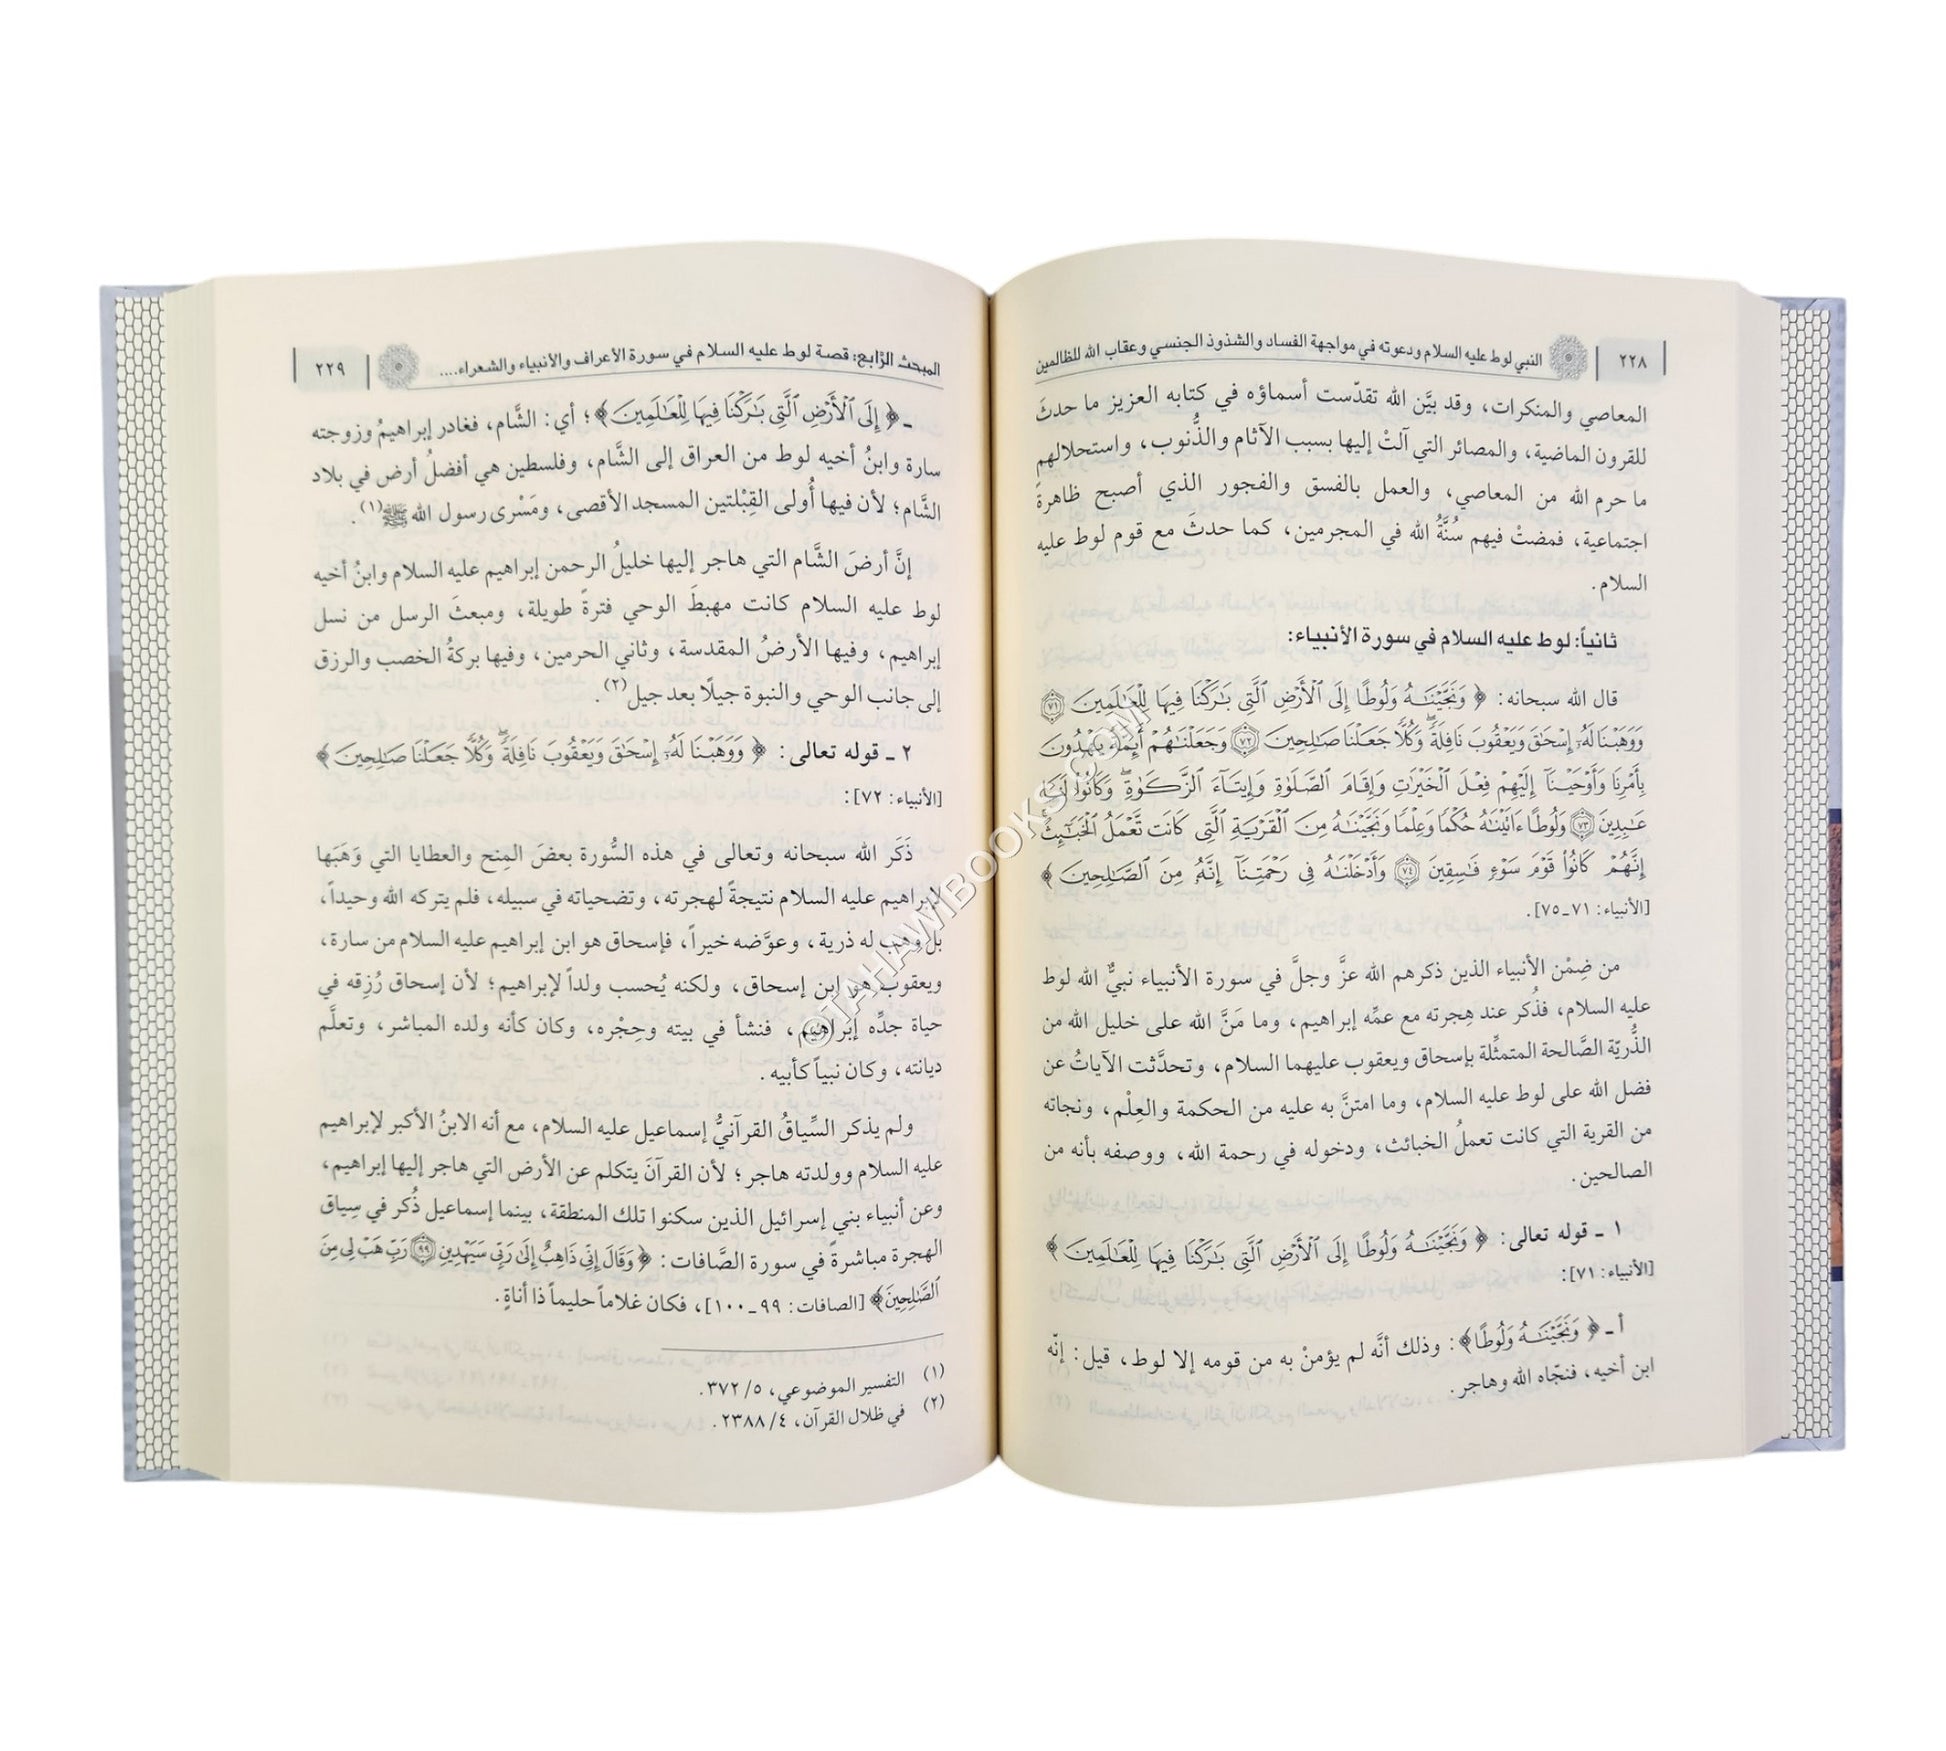 ٢٢٨
النبي لوط عليه السلام ودعوته في مواجهة الفساد والشذوذ الجنسي وعقاب الله للظالمين
المعاصي والمنكرات، وقد بيَّن الله تقدّست أسماؤه في كتابه العزيز ما حدثَ
للقرون الماضية، والمصائر التي آلتْ إليها بسبب الآثام والذُّنوب، واستحلالهم
ما حرم الله من المعاصي، والعمل بالفسق والفجور الذي أصبح ظاهرةً
اجتماعية، فمضتْ فيهم سُنَّةُ الله في المجرمين، كما حدثَ مع قوم لوط عليه
السلام.
ثانياً: لوط عليه السلام في سورة الأنبياء:
قال الله سبحانه: ﴿ وَنَجَّيْنَـٰهُ وَلُوطًا إِلَى ٱلْأَرْضِ ٱلَّتِى بَـٰرَكْنَا فِيهَا لِلْعَـٰلَمِينَ ٧١
وَوَهَبْنَا لَهُۥٓ إِسْحَـٰقَ وَيَعْقُوبَ نَافِلَةً ۖ وَكُلًّا جَعَلْنَا صَـٰلِحِينَ ٧٢ وَجَعَلْنَـٰهُمْ أَئِمَّةً يَهْدُونَ
بِأَمْرِنَا وَأَوْحَيْنَآ إِلَيْهِمْ فِعْلَ ٱلْخَيْرَٰتِ وَإِقَامَ ٱلصَّلَوٰةِ وَإِيتَآءَ ٱلزَّكَوٰةِ ۖ وَكَانُوا۟ لَنَا
عَـٰبِدِينَ ٧٣ وَلُوطًا ءَاتَيْنَـٰهُ حُكْمًا وَعِلْمًا وَنَجَّيْنَـٰهُ مِنَ ٱلْقَرْيَةِ ٱلَّتِى كَانَت تَّعْمَلُ ٱلْخَبَـٰٓئِثَ ۗ
إِنَّهُمْ كَانُوا۟ قَوْمَ سَوْءٍ فَـٰسِقِينَ ٧٤ وَأَدْخَلْنَـٰهُ فِى رَحْمَتِنَآ إِنَّهُۥ مِنَ ٱلصَّـٰلِحِينَ ﴾
[الأنبياء: ٧١ـ٧٥].
من ضِمْن الأنبياء الذين ذكرهم الله عزَّ وجلَّ في سورة الأنبياء نبيُّ الله لوط
عليه السلام، فذُكر عند هِجرته مع عمِّه إبراهيم، وما مَنَّ الله على خليل الله من
الذُّريّة الصَّالحة المتمثِّلة بإسحاق ويعقوب عليهما السلام، وتحدَّثت الآياتُ عن
فضل الله على لوط عليه السلام، وما امتنَّ به عليه من الحكمة والعِلْم، ونجاته
من القرية التي كانت تعملُ الخبائث، ودخوله في رحمة الله، ووصفه بأنه من
الصالحين.
١ ـ قوله تعالى: ﴿ وَنَجَّيْنَـٰهُ وَلُوطًا إِلَى ٱلْأَرْضِ ٱلَّتِى بَـٰرَكْنَا فِيهَا لِلْعَـٰلَمِينَ ﴾
[الأنبياء: ٧١]:
أ ـ ﴿ وَنَجَّيْنَـٰهُ وَلُوطًا﴾: وذلك أنَّه لم يؤمنْ به من قومه إلا لوط، قيل: إنّه
ابن أخيه، فنجّاه الله وهاجر.
المبحث الرَّابع: قصة لوط عليه السلام في سورة الأعراف والأنبياء والشعراء....
٢٢٩
ـ ﴿ إِلَى ٱلْأَرْضِ ٱلَّتِى بَـٰرَكْنَا فِيهَا لِلْعَـٰلَمِينَ﴾؛ أي: الشَّام، فغادر إبراهيمُ وزوجته
سارة وابنُ أخيه لوط من العراق إلى الشَّام، وفلسطين هي أفضلُ أرض في بلاد
الشَّام؛ لأن فيها أُولى القِبْلتين المسجد الأقصى، ومَسْرى رسول الله ﷺ(١).
إنَّ أرضَ الشَّام التي هاجر إليها خليلُ الرحمن إبراهيم عليه السلام وابنُ أخيه
لوط عليه السلام كانت مهبطَ الوحي فترةً طويلة، ومبعثَ الرسل من نسل
إبراهيم، وفيها الأرضُ المقدسة، وثاني الحرمين، وفيها بركةُ الخصب والرزق
إلى جانب الوحي والنبوة جيلًا بعد جيل(٢).
٢ ـ قوله تعالى: ﴿ وَوَهَبْنَا لَهُۥٓ إِسْحَـٰقَ وَيَعْقُوبَ نَافِلَةً ۖ وَكُلًّا جَعَلْنَا صَـٰلِحِينَ ﴾
[الأنبياء: ٧٢]:
ذَكَر الله سبحانه وتعالى في هذه السُّورة بعضَ المِنح والعطايا التي وَهَبَها
لإبراهيم عليه السلام نتيجةً لهجرته، وتضحياته في سبيله، فلم يتركه الله وحيداً،
بل وهب له ذرية، وعوَّضه خيراً، فإسحاق هو ابن إبراهيم عليه السلام من سارة،
ويعقوب هو ابن إسحاق، ولكنه يُحسب ولداً لإبراهيم؛ لأن إسحاق رُزِقه في
حياة جدِّه إبراهيم، فنشأ في بيته وحِجْره، وكان كأنه ولده المباشر، وتعلَّم
ديانته، وكان نبياً كأبيه.
ولم يذكر السِّياقُ القرآنيُّ إسماعيل عليه السلام، مع أنه الابنُ الأكبر لإبراهيم
عليه السلام وولدته هاجر؛ لأن القرآنَ يتكلم عن الأرض التي هاجر إليها إبراهيم،
وعن أنبياء بني إسرائيل الذين سكنوا تلك المنطقة، بينما إسماعيل ذُكر في سِياق
الهجرة مباشرةً في سورة الصَّافات: ﴿ وَقَالَ إِنِّى ذَاهِبٌ إِلَىٰ رَبِّى سَيَهْدِينِ ٩٩ رَبِّ هَبْ لِى مِنَ
ٱلصَّـٰلِحِينَ﴾ [الصافات: ٩٩ـ١٠٠]، فكان غلاماً حليماً ذا أناةٍ.
(١) التفسير الموضوعي، ٥/ ٣٧٢.
(٢) في ظلال القرآن، ٤/ ٢٣٨٨.
©TAHAWIBOOKS.COM